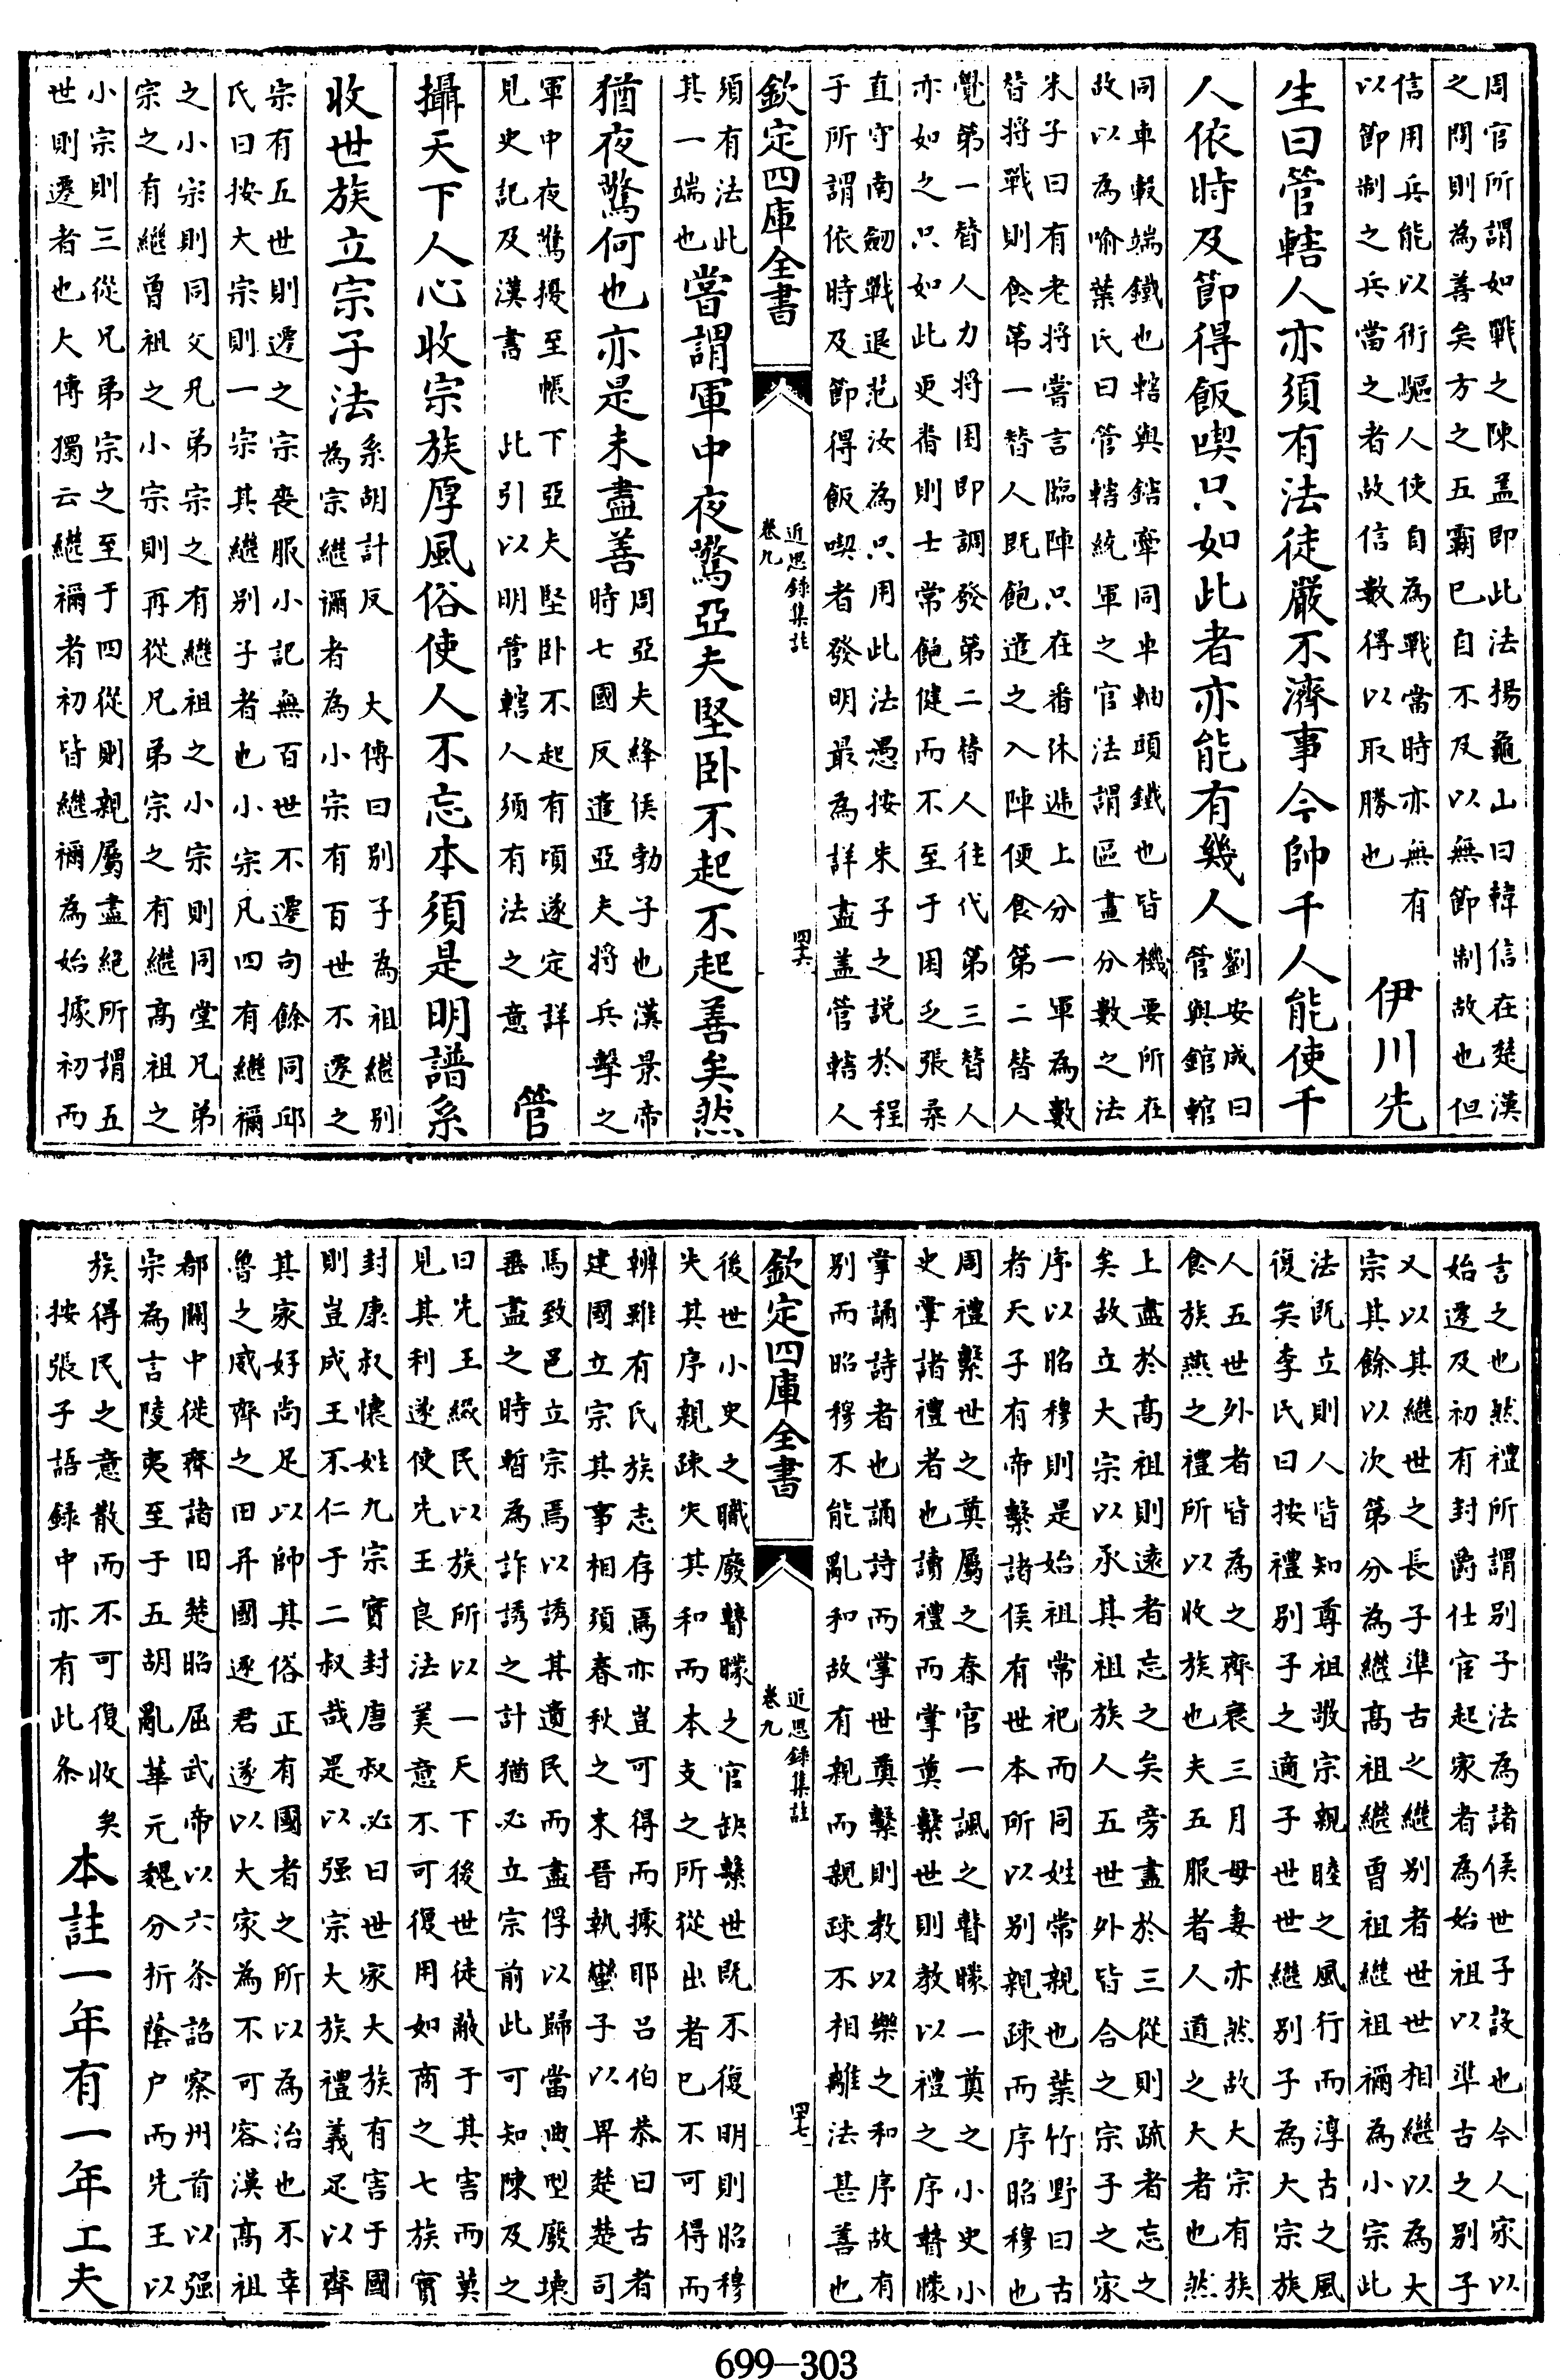 周官所謂如戰之陳孟即此法揚龜山曰韓信在楚漢
之間則為善矣方之五霸已自不及以無節制故也但
信用兵能以術驅人使自為戰當時亦無有
以節制之兵當之者故信數得以取勝也
伊川先
生曰管轄人亦須有法徒嚴不濟事今帥千人能使千
人依時及節得飯喫只如此者亦能有幾人
劉安成曰
管與錧輨
同車轂端鐵也轄與鎋舝同車軸頭鐵也皆機要所在
故以為喻葉氏曰管轄統軍之官法謂區畫分數之法
朱子曰有老將嘗言臨陣只在番休遞上分一軍為數
替將戰則食第一替人既飽遣之入陣便食第二替人
覺第一替人力將困即調發第二替人往代第三替人
亦如之只如此更番則士常飽健而不至于困乏張栞
直守南劒戰退范汝為只用此法愚按朱子之説於程
子所謂依時及節得飯喫者發明最為詳盡蓋管轄人
欽定四庫全書
近思録集註
卷九
四十六
須有法此
其一端也
當謂軍中夜驚亞夫堅卧不起不起善矣然
猶夜驚何也亦是未盡善
周亞夫絳侯勃子也漢景帝
時七國反遣亞夫將兵擊之
軍中夜驚擾至帳下亞夫堅卧不起有頃遂定詳
見史記及漢書 此引以明管轄人須有法之意
管
攝天下人心收宗族厚風俗使人不忘本須是明譜系
收世族立宗子法
系胡計反 大傳曰别子為祖繼别
為宗繼禰者為小宗有百世不遷之
宗有五世則遷之宗喪服小記無百世不遷句餘同邱
氏曰按大宗則一宗其繼别子者也小宗凡四有繼禰
之小宗則同父兄弟宗之有繼祖之小宗則同堂兄弟
宗之有繼曾祖之小宗則再從兄弟宗之有繼高祖之
小宗則三從兄弟宗之至于四從則親屬盡絶所謂五
世則遷者也大傳獨云繼禰者初皆繼禰為始據初而
言之也然禮所謂别子法為諸侯世子設也今人家以
始遷及初有封爵仕宦起家者為始祖以準古之别子
又以其繼世之長子準古之繼别者世世相繼以為大
宗其餘以次第分為繼高祖繼曾祖繼祖禰為小宗此
法既立則人皆知尊祖敬宗親睦之風行而淳古之風
復矣李氏曰按禮别子之適子世世繼别子為大宗族
人五世外者皆為之齊衰三月母妻亦然故大宗有族
食族燕之禮所以收族也夫五服者人道之大者也然
上盡於高祖則遠者忘之矣旁盡於三從則疏者忘之
矣故立大宗以承其祖族人五世外皆合之宗子之家
序以昭穆則是始祖常祀而同姓常親也葉竹野曰古
者天子有帝繫諸侯有世本所以别親疎而序昭穆也
周禮繫世之奠屬之春官一諷之瞽矇一奠之小史小
史掌諸禮者也讀禮而掌奠繫世則教以禮之序瞽矇
掌誦詩者也誦詩而掌世奠繫則教以樂之和序故有
别而昭穆不能亂和故有親而親疎不相離法甚善也
欽定四庫全書
近思録集註
卷九
四十七
後世小史之職廢瞽矇之官缺繫世既不復明則昭穆
失其序親疎失其和而本支之所從出者已不可得而
辨雖有氏族志存焉亦豈可得而據耶吕伯恭曰古者
建國立宗其事相須春秋之末晉執蠻子以畀楚楚司
馬致邑立宗焉以誘其遺民而盡俘以歸當典型廢壞
亟盡之時暫為詐誘之計猶必立宗前此可知陳及之
曰先王綴民以族所以一天下後世徒敝于其害而莫
見其利遂使先王良法美意不可復用如商之七族實
封康叔懷姓九宗實封唐叔必曰世家大族有害于國
則豈成王不仁于二叔哉是以强宗大族禮義足以齊
其家好尚足以帥其俗正有國者之所以為治也不幸
魯之威齊之田并國逐君遂以大家為不可容漢高祖
都關中徙齊諸田楚昭屈武帝以六条詔察州首以强
宗為言陵夷至于五胡亂華元魏分析蔭户而先王以
族得民之意散而不可復收矣
按張子語録中亦有此条
本註一年有一年工夫
699-303